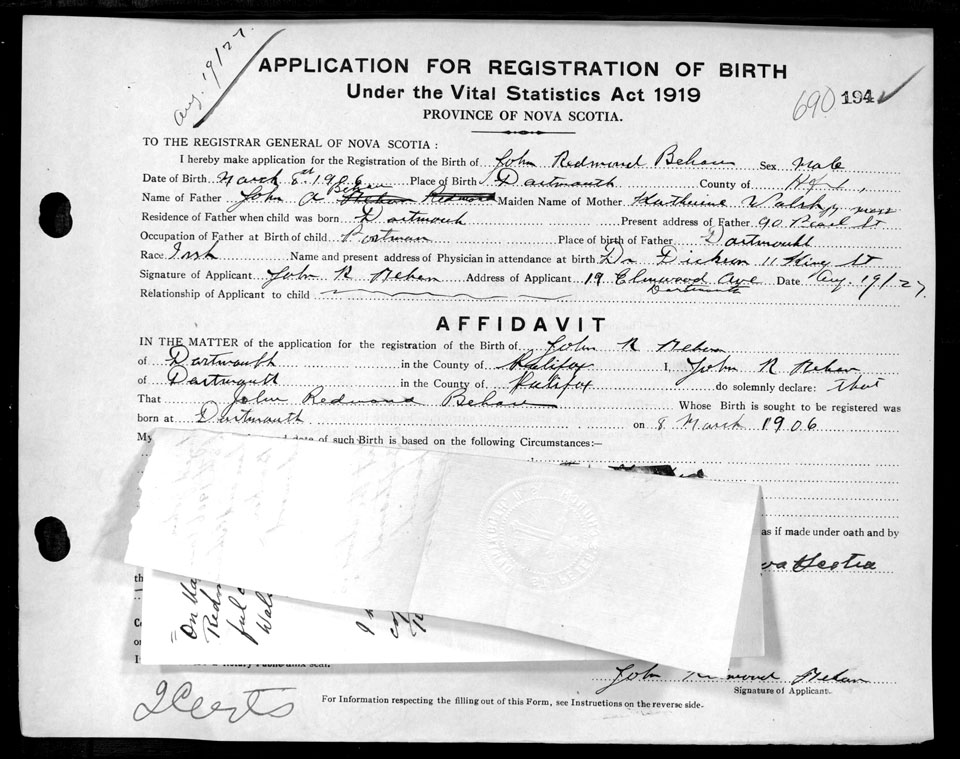 Aug. 19/27.
APPLICATION FOR REGISTRATION OF BIRTH
Under the Vital Statistics Act 1919
PROVINCE OF NOVA SCOTIA.
690 194
TO THE REGISTRAR GENERAL OF NOVA SCOTIA :
I hereby make application for the Registration of the Birth of John Redmond Behan Sex Male
Date of Birth March 8th 1906 Place of Birth Dartmouth County of Hfx,
Name of Father John A Behan Redmond Maiden Name of Mother Katherine Walsh
Residence of Father when child was born Dartmouth Present address of Father 90 Pearl St
Occupation of Father at Birth of child Postman Place of birth of Father Dartmouth
Race Irish Name and present address of Physician in attendance at birth Dr 11 King St
Signature of Applicant John R Behan Address of Applicant 19 Elmwood Ave Dartmouth Date Aug. 19/27.
Relationship of Applicant to child
AFFIDAVIT
IN THE MATTER of the application for the registration of the Birth of John R Behan
of Dartmouth in the County of Halifax I, John R Behan
of Dartmouth in the County of Halifax do solemnly declare: that
That John Redmond Behan Whose Birth is sought to be registered was
born at Dartmouth on 8 March 1906
My date of such Birth is based on the following Circumstances:—
as if made under oath and by
Scotia
th
"On Ma
Redm
ful
Wal
I
John Redmond Behan
Signature of Applicant.
2 Certs
For Information respecting the filling out of this Form, see Instructions on the reverse side.